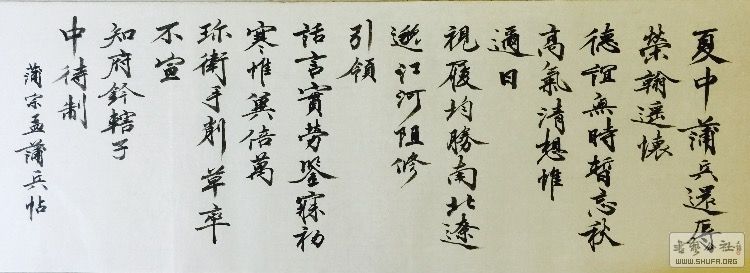 夏中蒲兵還辱
榮翰遥懷
德誼無時暫忘秋
高氣清想惟
邇日
視履均勝南北遼
邈江河阻修
引領
話言實勞鑒寐初
寒惟冀倍萬
珎衛手削草卒
不宣
知府鈐轄子
中待制
蒲宗孟蒲兵帖
WWW.SHUFA.ORG